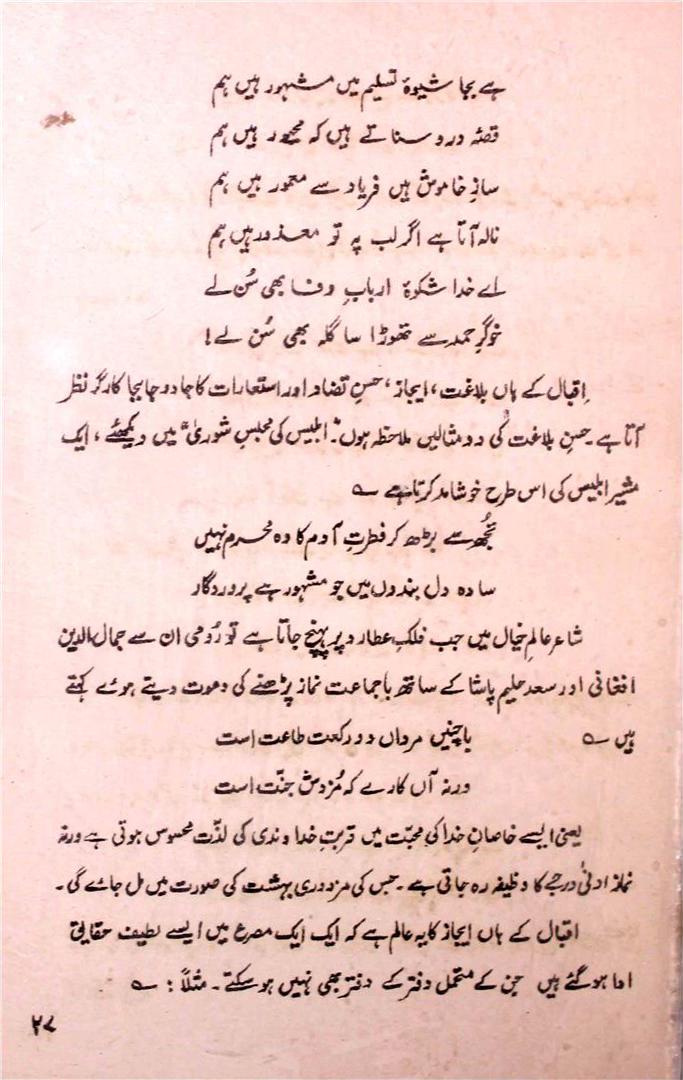 ہے بجا شیوۂ تسلیم میں مشہور ہیں ہم
قصّہ درد سناتے ہیں کہ مجبور ہیں ہم
سازِ خاموش ہیں فریاد سے معمور ہیں ہم
نالہ آتا ہے اگر لب پہ تو معذور ہیں ہم
اے خدا شکوۂ اربابِ وفا بھی سُن لے
خوگرِ حمد سے تھوڑا سا گلہ بھی سُن لے!
اِقبال کے ہاں بلاغت، ایجاز، حسنِ تضاد اور استعارات کا جادو جابجا کارگر نظر
آتا ہے۔ حسنِ بلاغت کی دو مثالیں ملاحظہ ہوں۔ "ابلیس کی مجلسِ شوریٰ" میں دیکھئے، ایک
مشیر ابلیس کی اس طرح خوشامد کرتا ہے ؎
تجُھ سے بڑھ کر فطرتِ آدم کا وہ محرم نہیں
سادہ دل بندوں میں جو مشہور ہے پروردگار
شاعر عالمِ خیال میں جب فلکِ عطارد پر پہنچ جاتا ہے تو رُومی ان سے جمال الدین
افغانی اور سعد حلیم پاشا کے ساتھ باجماعت نماز پڑھنے کی دعوت دیتے ہوئے کہتے
ہیں ؎ باچنیں مرداں دو رکعت طاعت است
ورنہ آں کارے کہ مُزدش جنّت است
یعنی ایسے خاصانِ خدا کی محبّت میں قربتِ خداوندی کی لذّت محسوس ہوتی ہے ورنہ
نماز ادنیٰ درجے کا وظیفہ رہ جاتی ہے۔ جس کی مزدوری بہشت کی صورت میں مل جائے گی۔
اقبال کے ہاں ایجاز کا یہ عالم ہے کہ ایک ایک مصرع میں ایسے لطیف حقایق
ادا ہو گئے ہیں جن کے متحمل دفتر کے دفتر بھی نہیں ہو سکتے۔ مثلاً : ؎
۲۷